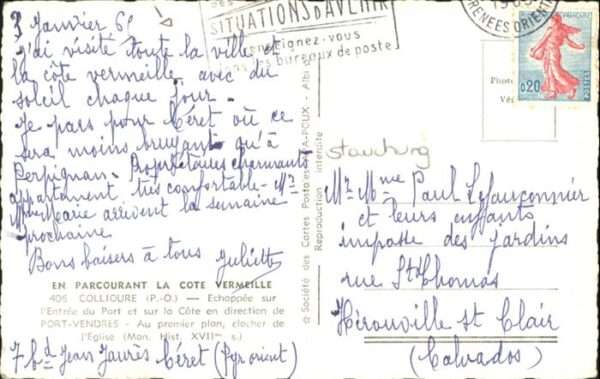 3 Janvier 6
J'ai visité toute la ville et
la côte vermeille avec du
soleil chaque jour.
Je pars pour Céret où ce
sera moins bruyant qu'à
Perpignan. Propriétaires charmants
appartement très comfortable - Mr
Mme Marie arrivent la semaine
prochaine
Bons baisers à tous Juliette
EN PARCOURANT LA COTE VERMEILLE
406 COLLIOURE (P.-O.) — Echappée sur
l'Entrée du Port et sur la Côte en direction de
PORT-VENDRES - Au premier plan, clocher de
l'Eglise (Mon. Hist. XVIIme s.)
7 bd Jean Jaurès Céret (Pyr orient)
SITUATIONS D'AVENIR
renseignez-vous
bureaux de poste
PYRENEES ORIENT
0,20
Photo
Vér
© Société des Cartes Postales A-POUX - Albi
Reproduction interdite
Mr Mme Paul Lefauconnier
et leurs enfants
impasse des jardins
rue St Thomas
Hérouville St Clair
(Calvados)